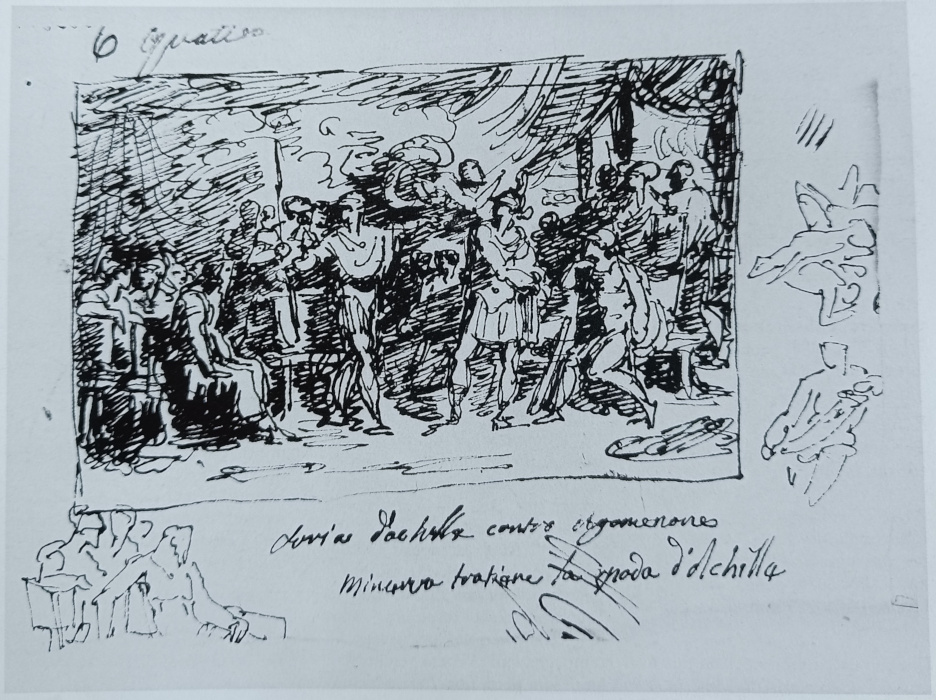 6
d'achille contro Agamenone
Minerva tratiene la spada d'Achille